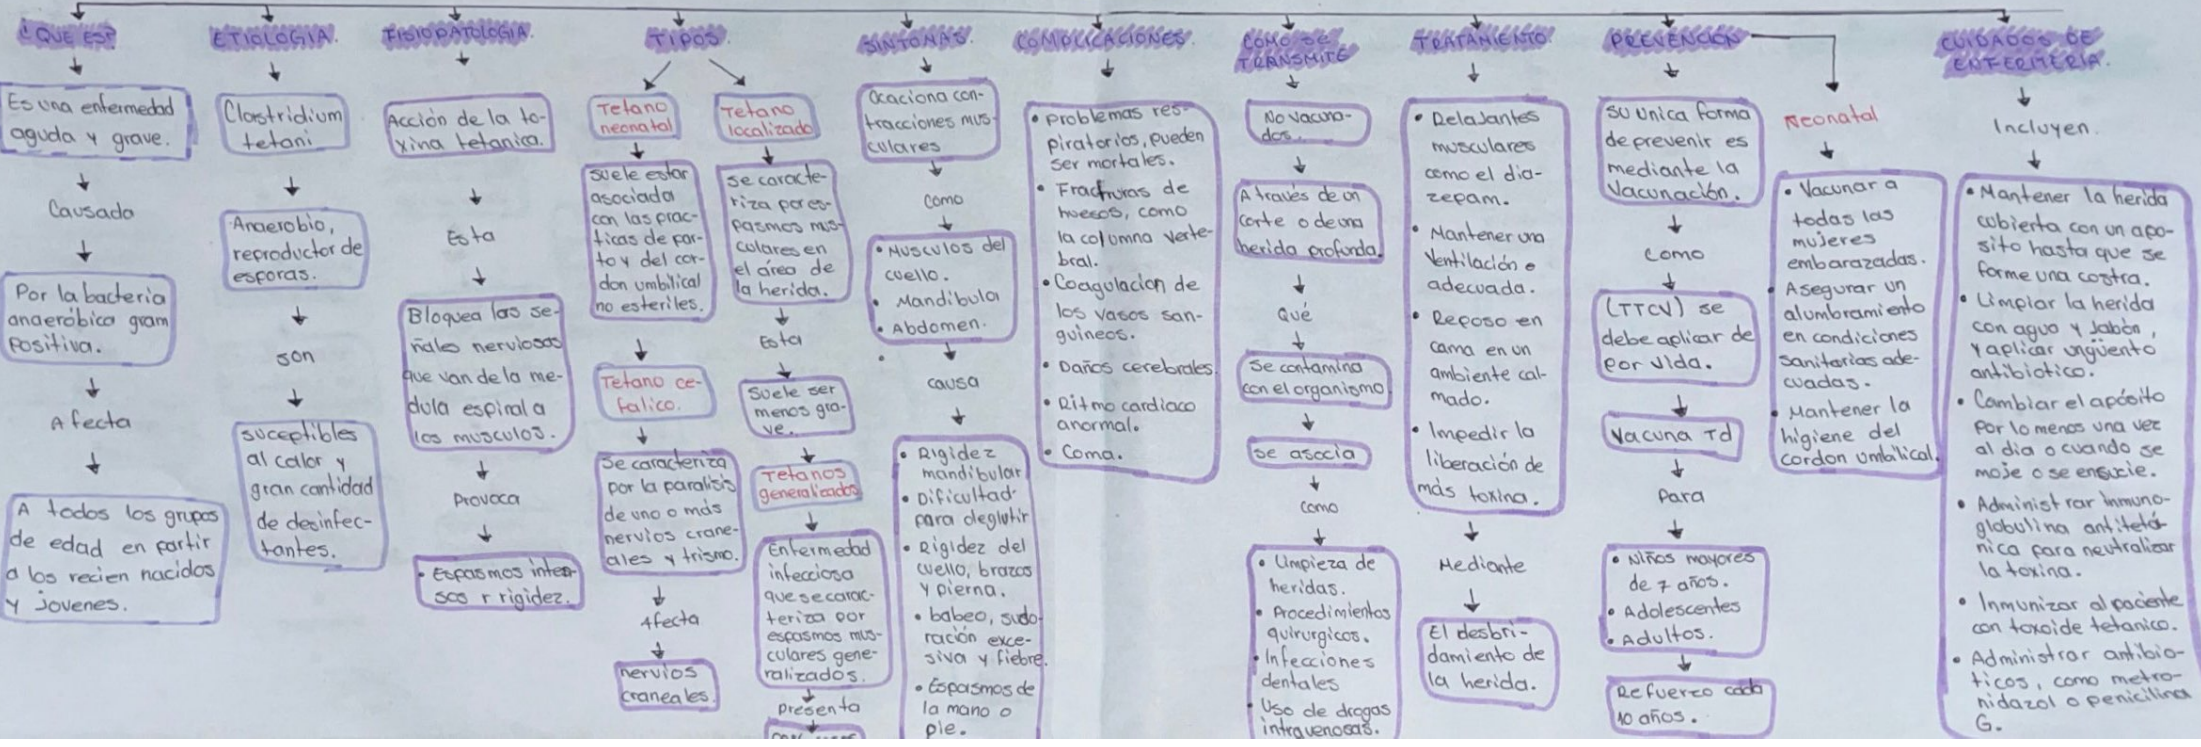 ¿QUE ES?
Es una enfermedad
aguda y grave.
Causada
Por la bacteria
anaeróbica gram
positiva.
Afecta
A todos los grupos
de edad en partir
a los recien nacidos
y jovenes.
ETIOLOGIA.
Clostridium
tetani
Anaerobio,
reproductor de
esporas.
son
suceptibles
al calor y
gran cantidad
de desinfec-
tantes.
FISIOPATOLOGIA.
Acción de la to-
xina tetanica.
Esta
Bloquea las se-
ñales nerviosas
que van de la me-
dula espinal a
los musculos.
Provoca
• Espasmos inten-
sos r rigidez.
TIPOS.
Tetano
neonatal
suele estar
asociada
con las prac-
ticas de par-
to y del cor-
don umbilical
no esteriles.
Tetano ce-
falico.
Se caracteriza
por la paralisis
de uno o más
nervios crane-
ales y trismo.
Afecta
nervios
craneales.
Tetano
localizado
se caracte-
riza por es-
pasmos mus-
culares en
el área de
la herida.
Esta
Suele ser
menos gra-
ve.
Tetanos
generalizados
Enfermedad
infecciosa
que se carac-
teriza por
espasmos mus-
culares gene-
ralizados.
Presenta
SINTOMAS.
Ocaciona con-
tracciones mus-
culares
como
• Musculos del
cuello.
• Mandibula
• Abdomen.
causa
• Rigidez
mandibular
• Dificultad
para deglutir
• Rigidez del
cuello, brazos
y pierna.
• babeo, sudo-
ración exce-
siva y fiebre.
• Espasmos de
la mano o
pie.
COMPLICACIONES.
• Problemas res-
piratorios, pueden
ser mortales.
• Fracturas de
huesos, como
la columna verte-
bral.
• Coagulacion de
los vasos san-
guineos.
• Daños cerebrales.
• Ritmo cardiaco
anormal.
• Coma.
COMO SE
TRANSMITE
No vacuna-
dos.
A través de un
corte o de una
herida profunda.
Qué
Se contamina
con el organismo
se asocia
como
• Limpieza de
heridas.
• Procedimientos
quirurgicos.
• Infecciones
dentales
• Uso de drogas
intravenosas.
TRATAMIENTO.
• Relajantes
musculares
como el dia-
zepam.
• Mantener una
ventilación
adecuada.
• Reposo en
cama en un
ambiente cal-
mado.
• Impedir la
liberación de
más toxina.
Mediante
El desbri-
damiento de
la herida.
PREVENCIÓN
su unica forma
de prevenir es
mediante la
vacunación.
como
(TTCV) se
debe aplicar de
por vida.
Vacuna Td
Para
• Niños mayores
de 7 años.
• Adolescentes
• Adultos.
Refuerzo cada
10 años.
Neonatal
• Vacunar a
todas las
mujeres
embarazadas.
• Asegurar un
alumbramiento
en condiciones
sanitarias ade-
cuadas.
• Mantener la
higiene del
cordon umbilical.
CUIDADOS DE
ENFERMERIA.
Incluyen.
• Mantener la herida
cubierta con un apo-
sito hasta que se
forme una costra.
• Limpiar la herida
con agua y Jabón,
y aplicar ungüento
antibiotico.
• Cambiar el apósito
por lo menos una vez
al dia o cuando se
moje o se ensucie.
• Administrar inmuno-
globulina antitetá-
nica para neutralizar
la toxina.
• Inmunizar al paciente
con toxoide tetanico.
• Administrar antibio-
ticos, como metro-
nidazol o penicilina
G.